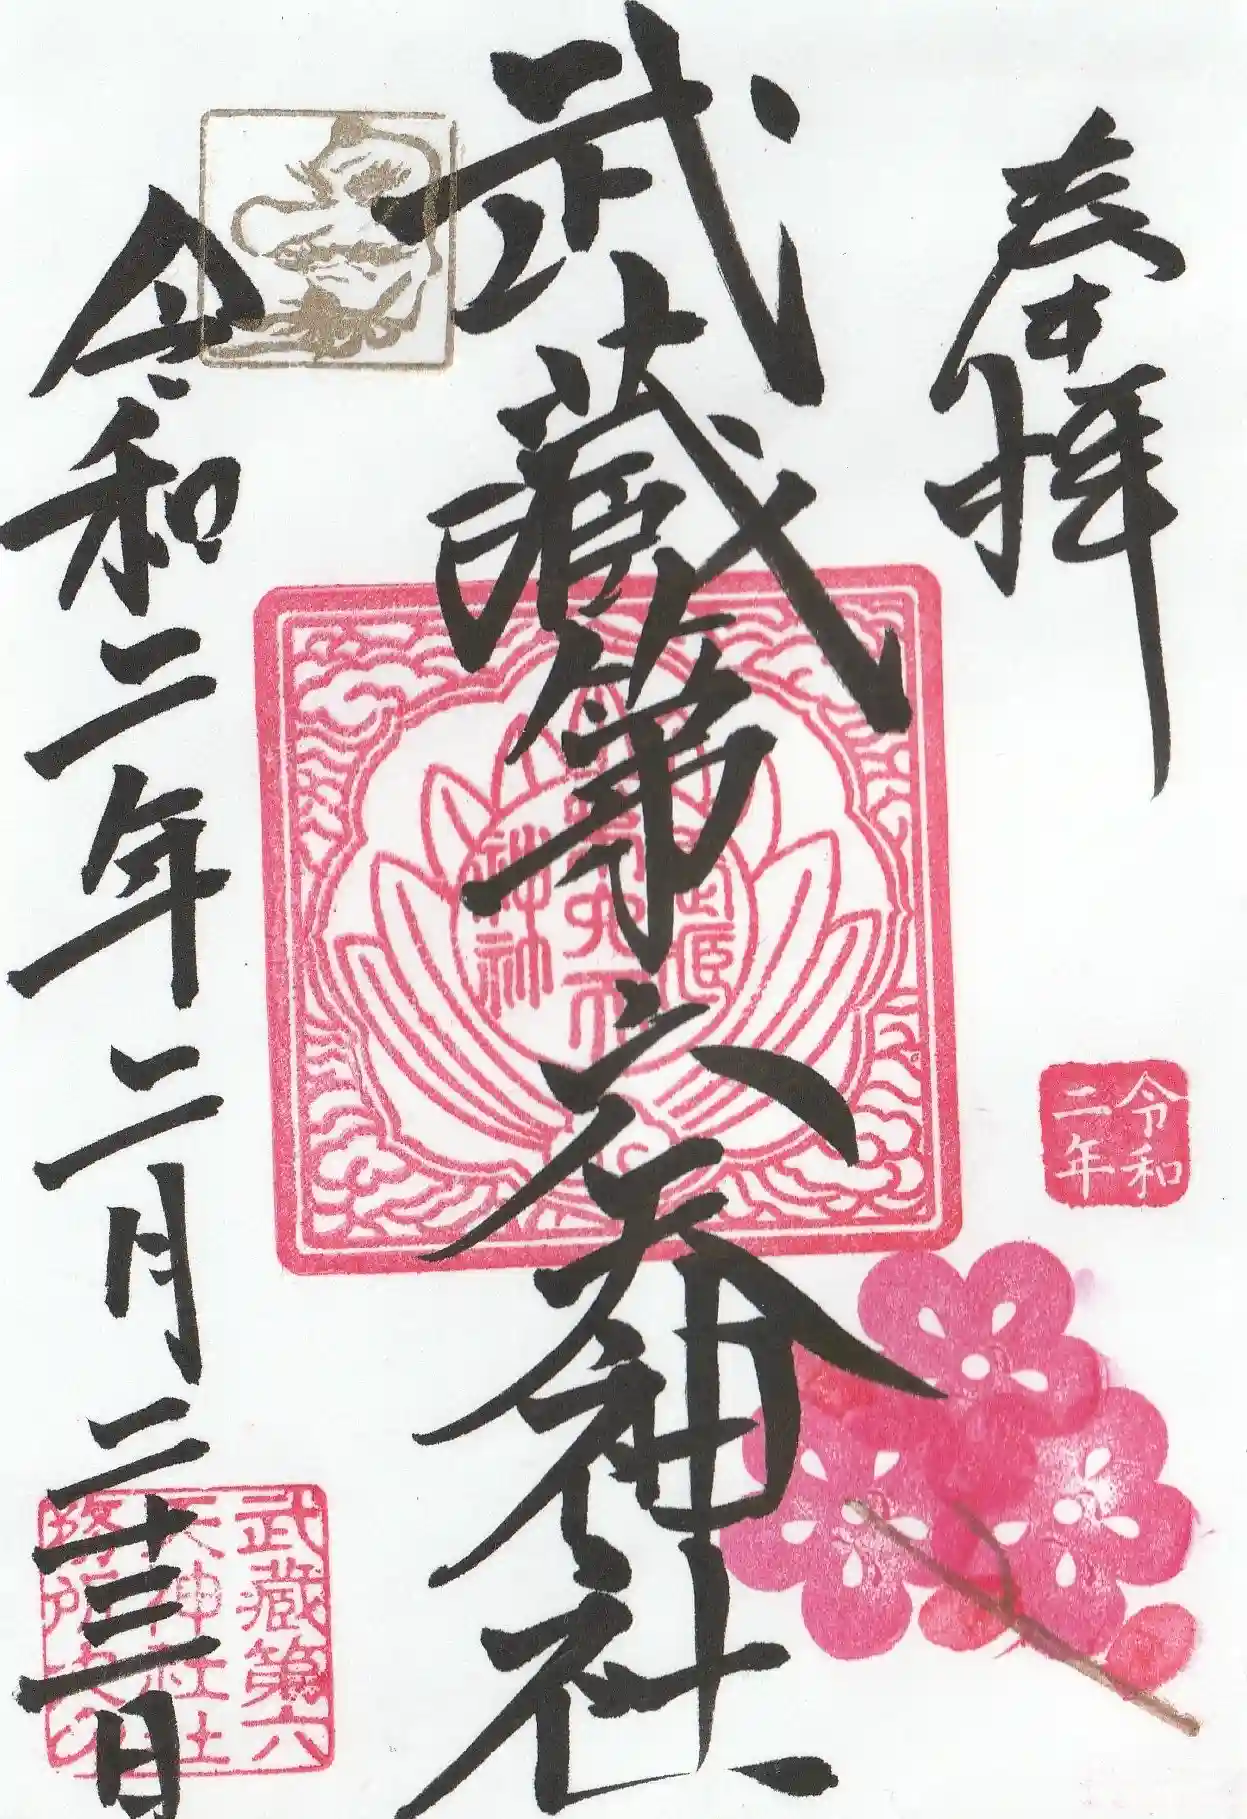 奉拝
武蔵第六天神社
令和二年二月二十三日
令和
二年
武蔵第六
天神社社
務所史の